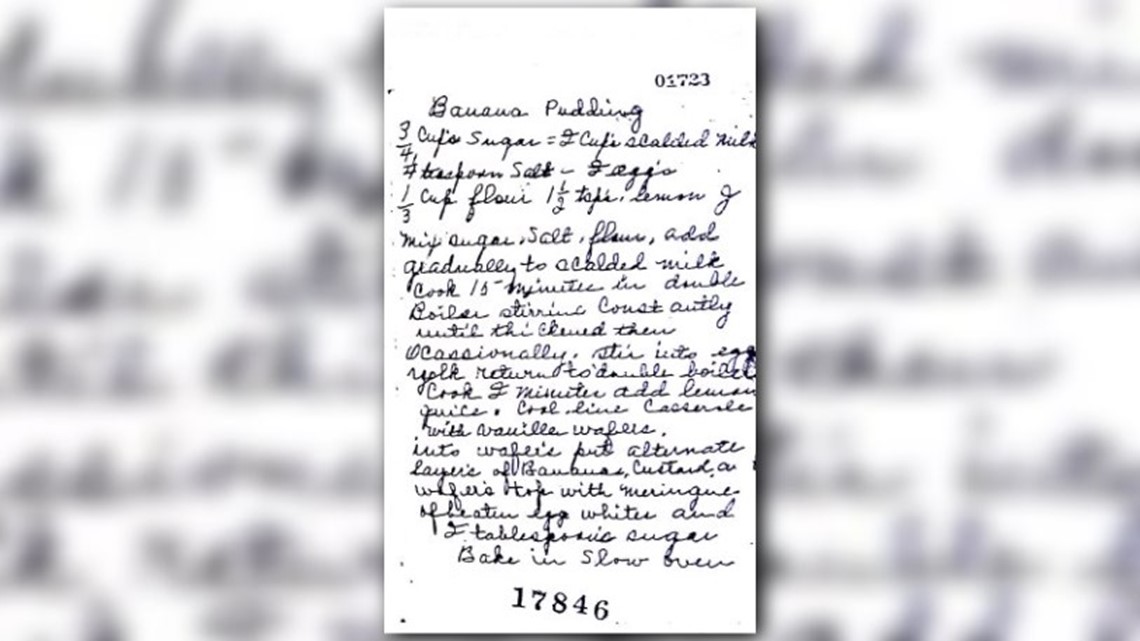 01723
Banana Pudding
3/4 Cup's Sugar = 2 Cup's scalded milk
teaspoon Salt - 2 egg's
1/3 Cup flour 1 1/2 tsps. lemon J
Mix sugar, Salt, flour, add
gradually to scalded milk
Cook 15 minutes in double
Boiler stirring Constantly
until thickened then
Ocassionally. stir into egg
yolk return to double boiler
Cook 2 minutes add lemon
juice. Cool line Casserole
with vanilla wafers.
into wafers put alternate
layer's of Bananas, Custard, a
wafer's top with meringue
of beaten egg whites and
2 tablespoons sugar
Bake in Slow oven
17846